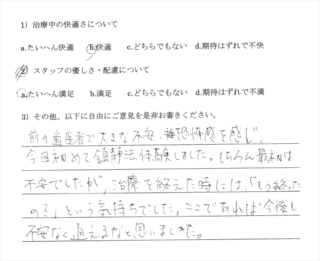 1）治療中の快適さについて
a.たいへん快適　b.快適　c.どちらでもない　d.期待はずれで不快
2）スタッフの優しさ・配慮について
a.たいへん満足　b.満足　c.どちらでもない　d.期待はずれで不満
3）その他、以下に自由にご意見を是非お書きください。
前の歯医者で大きな不安、恐怖感を感じ、
今回初めて鎮静法体験しました。もちろん最初は
不安でしたが、治療を終えた時には、「もう終った
の？」という気持ちでした。ここであれば今後も
不安なく通えるなと思いました。